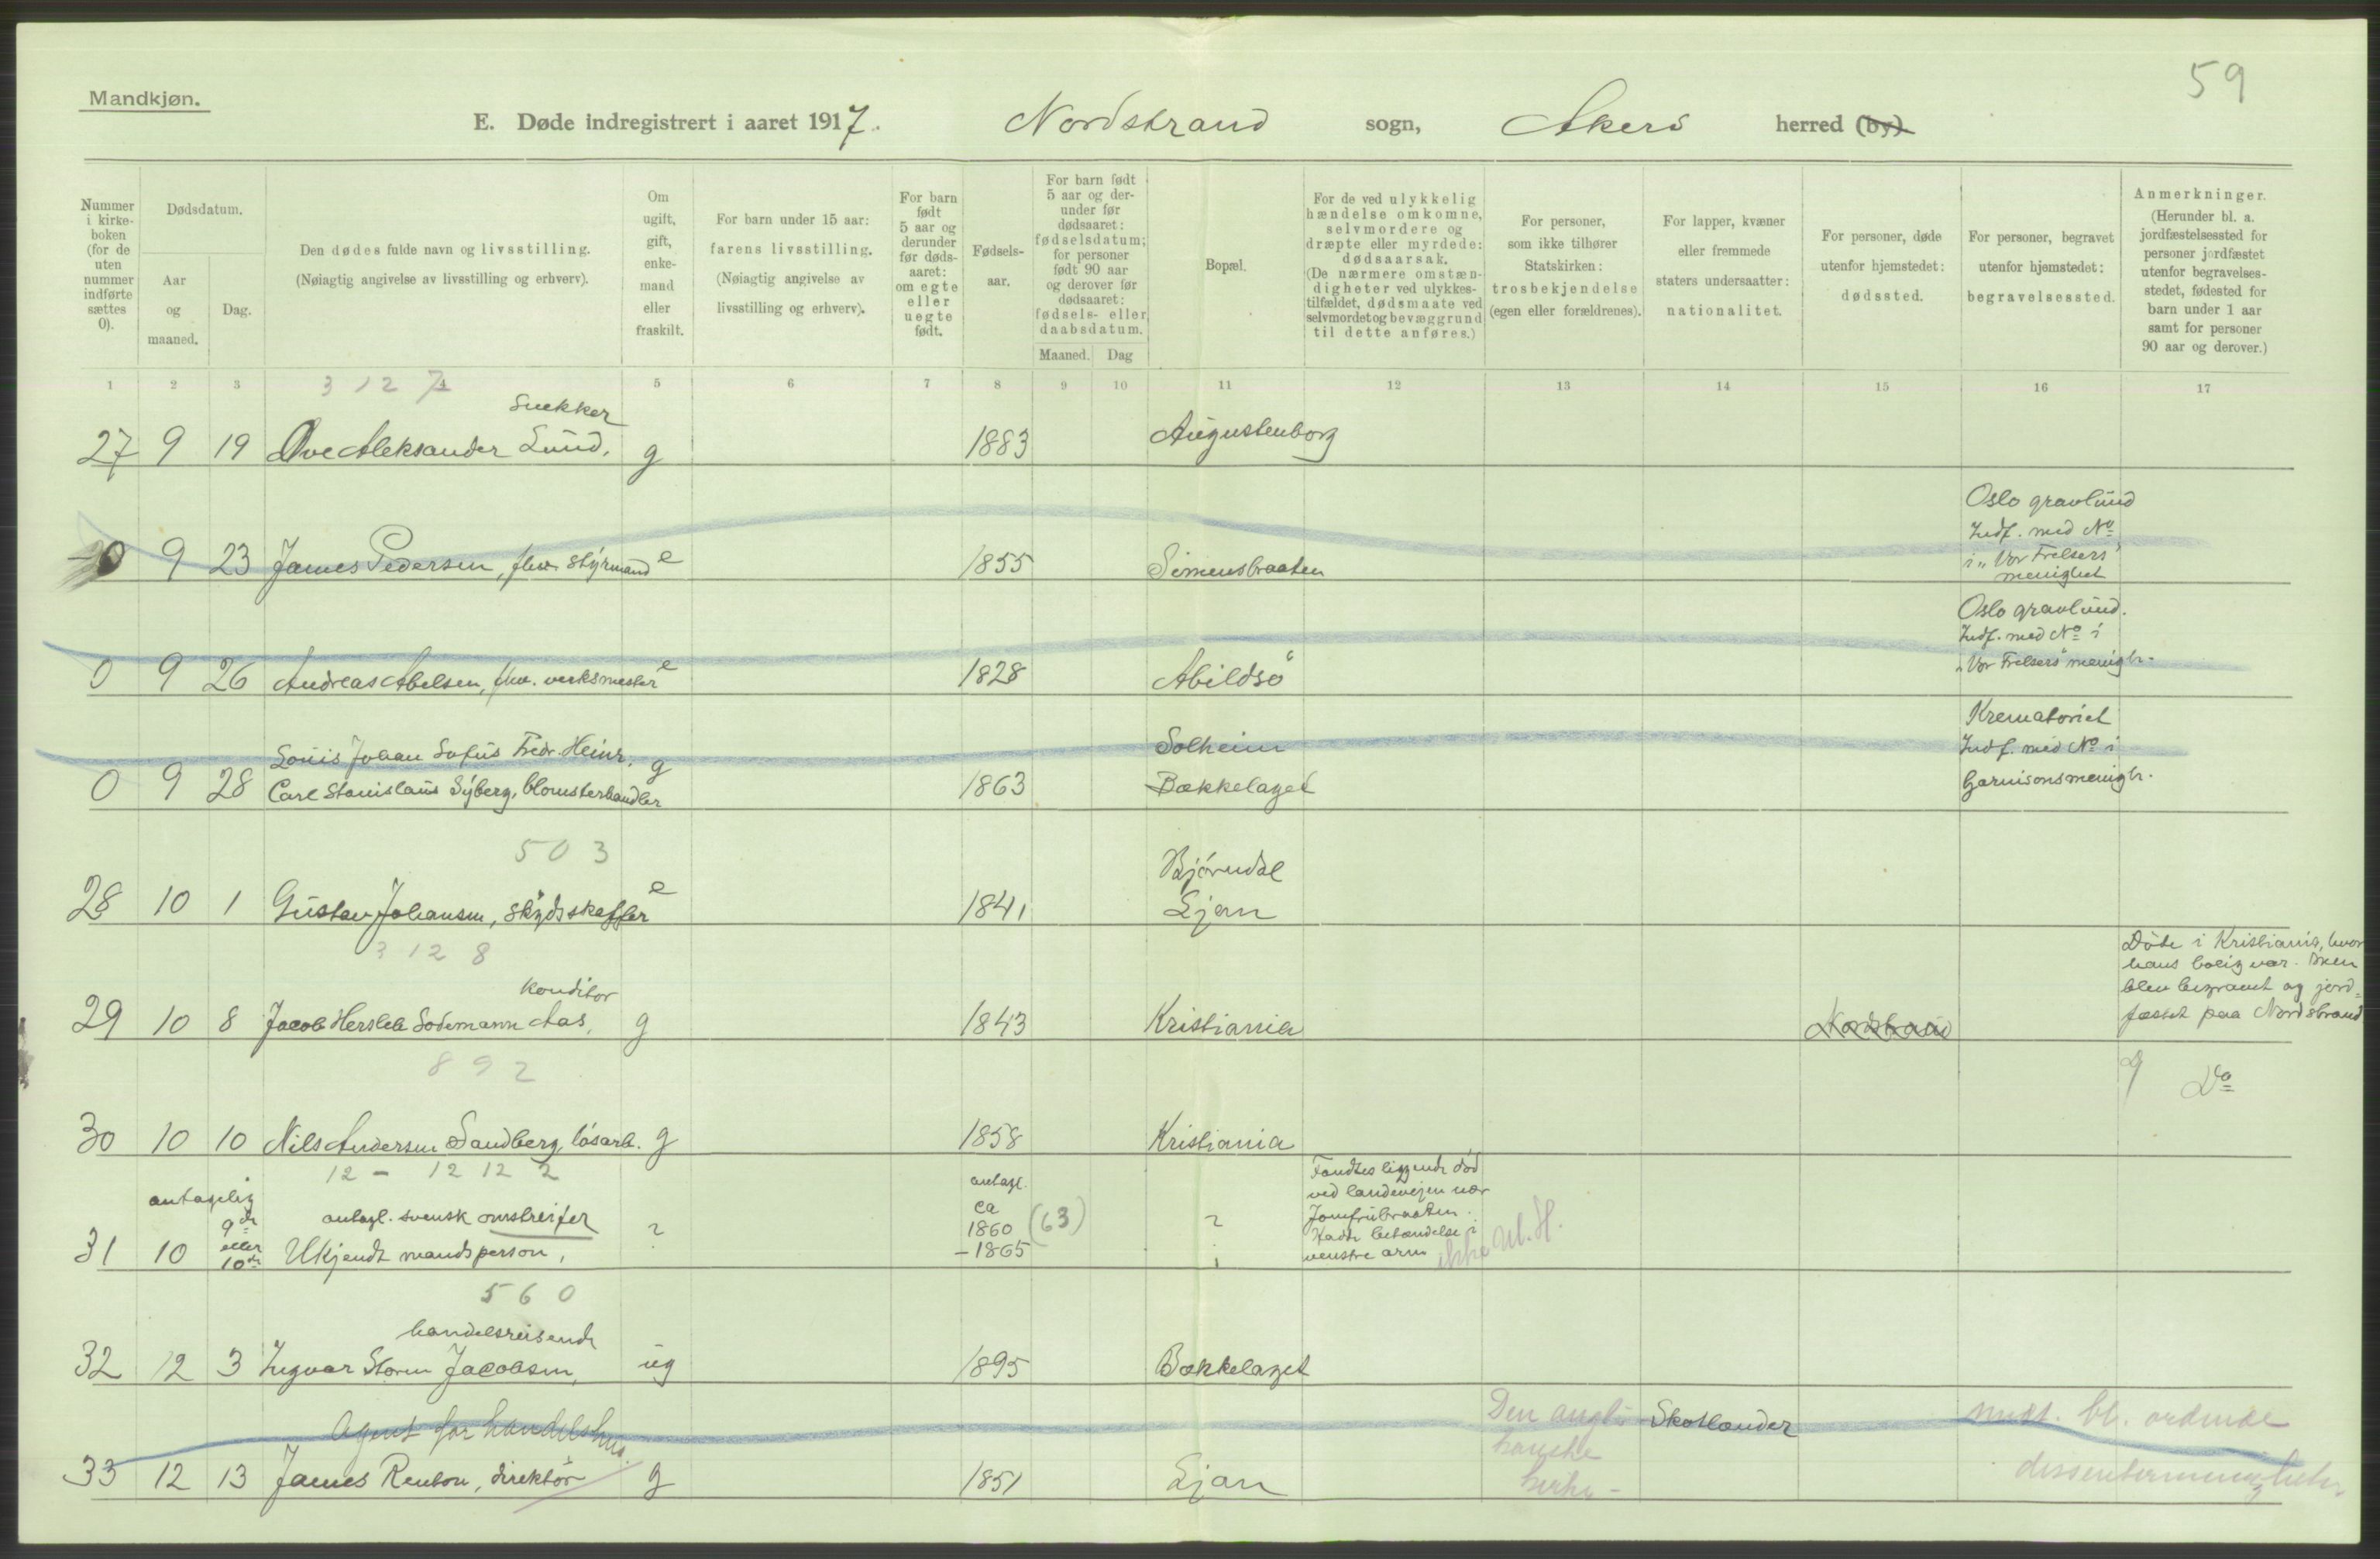 59
Mandkjøn.
E. Døde indregistrert i aaret 1917. Nordstrand sogn, Akers herred (by)
Nummer i kirkeboken (for de uten nummer indførte sættes 0).
Dødsdatum.
Aar og maaned.
Dag.
Den dødes fulde navn og livsstilling.
(Nøiagtig angivelse av livsstilling og erhverv).
Om ugift, gift, enkemand eller fraskilt.
For barn under 15 aar:
farens livsstilling.
(Nøiagtig angivelse av livsstilling og erhverv).
For barn født 5 aar og derunder før dødsaaret: om egte eller uegte født.
Fødselsaar.
For barn født 5 aar og derunder før dødsaaret: fødselsdatum; for personer født 90 aar og derover før dødsaaret: fødsels- eller daabsdatum.
Maaned. Dag
Bopæl.
For de ved ulykkelig hændelse omkomne, selvmordere og dræpte eller myrdede: dødsaarsak.
(De nærmere omstændigheter ved ulykkestilfældet, dødsmaate ved selvmordet og bevæggrund til dette anføres.)
For personer, som ikke tilhører Statskirken: trosbekjendelse (egen eller forældrenes).
For lapper, kvæner eller fremmede staters undersaatter: nationalitet.
For personer, døde utenfor hjemstedet: dødssted.
For personer, begravet utenfor hjemstedet: begravelsessted.
Anmerkninger.
(Herunder bl. a. jordfæstelsessted for personer jordfæstet utenfor begravelsesstedet, fødested for barn under 1 aar samt for personer 90 aar og derover.)
1 2 3 5 6 7 8 9 10 11 12 13 14 15 16 17
3 12 7
Snekker
27 9 19 Ove Aleksander Lund, g 1883 Augustenborg
Oslo gravlund
Indf. med No
i "Vor Frelsers"
menighet
0 9 23 James Pedersen, fhv. styrmand e 1855 Simensbraaten
Oslo gravlund.
Indf. med No i
"Vor Frelsers" menigh.
0 9 26 Andreas Abelsen, fhv. verksmester e 1828 Abildsø
Krematoriet
Indf. med No i
Garnisonsmenigh.
Louis Johan Sofus Fredr. Heinr. g Solheim
0 9 28 Carl Stanislaus Syberg, blomsterhandler 1863 Bækkelaget
503
Bjørndal
28 10 1 Gustav Johansen, skydsskaffer e 1841 Ljan
3 12 8
Konditor
29 10 8 Jacob Hersleb Sodemann Aas, g 1843 Kristiania Nordstrand
Døde i Kristiania, hvor
hans bolig var. Men
blev begravet og jord-
fæstet paa Nordstrand
892
30 10 10 Nils Andersen Sandberg, løsarb. g 1858 Kristiania Do
12 – 12 12 2
antagelig
antagl. svensk omstreifer
31 10 9de eller 10de Ukjendt mandsperson, ? antagl. ca 1860 - 1865 (63) ?
Fandtes liggende død
ved landeveien nær
Jomfrubraaten.
Hadde betændelse i
venstre arm
ikke Ul. H.
560
handelsreisende
32 12 3 Ingvar Storm Jacobsen, ug 1895 Bækkelaget
Agent for handelshus.
33 12 13 James Renton, direktør g 1851 Ljan
Den angli-
kanske
kirke -
Skotlænder
medt. bl. ordinære
dissentermenigheter